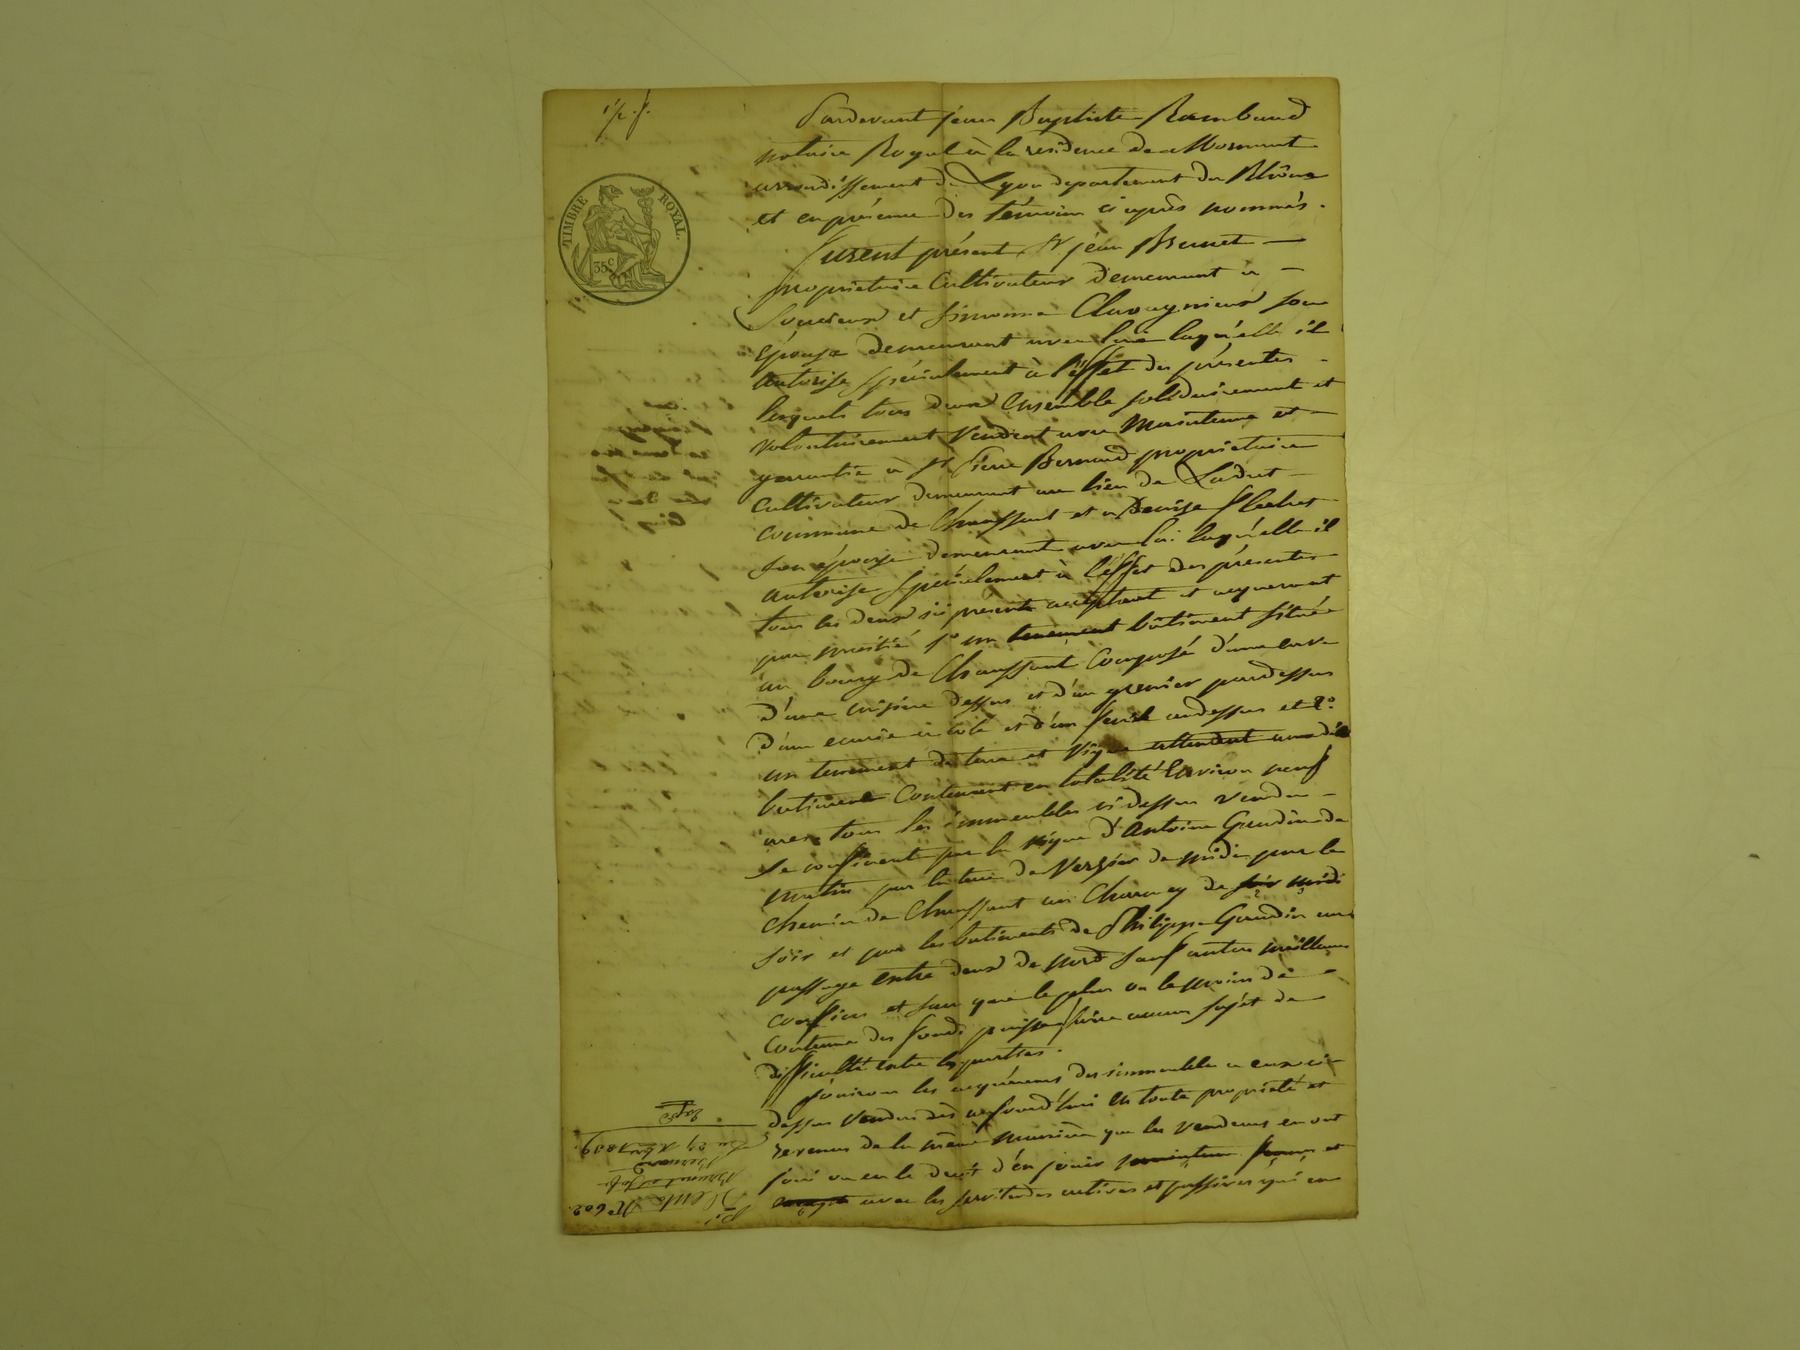 1/2. f.
TIMBRE ROYAL.
35c
Pardevant jean Baptiste Rambaud
notaire Royal à la residence de Mornant
arrondissement de Lyon departement du Rhône
et en présence des témoins ci après nommés.
furent présent Sr jean Brunet
propriétaire Cultivateur demeurant à
Soucieux et simonne Chavagnieux son
épouse demeurant avec lui laquelle il
autorise spécialement à l'éffet des présentes
lesquels tous deux ensemble solidairement et
volontairement vendent avec Maintenue et
garantie à Sr Pierre Bernard propriétaire
cultivateur demeurant au lieu de
commune de Chaussant et a Denise flechet
son épouse demeurant avec lui laquelle il
autorise spécialement à l'effet des présentes
tous les deux ici présents acceptant et acquerant
par moitié 1º un tenement bâtiment située
au bourg de Chaussant Composé d'une cave
d'une cuisine dessus et d'un grenier pardessus
d'une ecurie à côté et d'un fenil audessus et 2º
un tenement de terre et vigne attendant
batiment Contenant en totalité Environ neuf
ares tous les immeubles ci dessus vendus
se confinent par la vigne d'Antoine Gaudin de
matin par la terre de Verzier de midi par le
chemin de Chaussant au Charney de soir midi
soir et par les batiments de Philippe Gaudin un
passage entre deux de nord sauf autres meilleurs
confins et sans que le plus ou le moins de
contenue des fonds puisse faire aucun sujét de
difficulté entre les parties.
jouiront les acquéreurs des immeubles a eux ci
dessus vendus dès aujourd'hui en toute propriété et
revenus de la même manière que les vendeurs en ont
joui ou eu le droit d'en jouir et
avec les servitudes actives et passives qui en
Nº 602.
Vente
Brunet
Bernard
Du 29 1839.
Exp.d